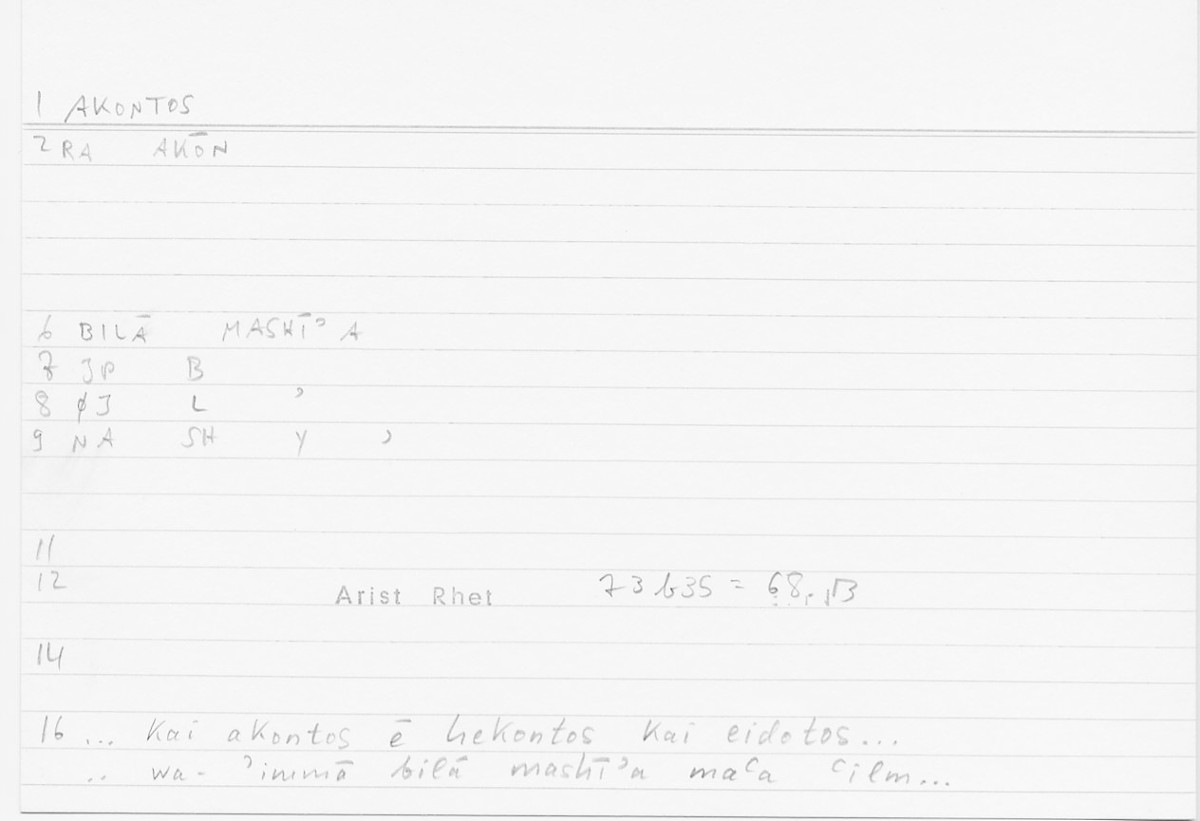 1 AKONTOS
2 RA AKŌN
6 BILĀ MASHĪʾA
7 JP B
8 ¢J L ʾ
9 NA SH Y ʾ
11
12 Arist Rhet 73 b35 = 68,
14
16 ... Kai akontos ē hekontos kai eidotos...
.. wa- ʾimmā bilā mashīʾa maʿa ʿilm...